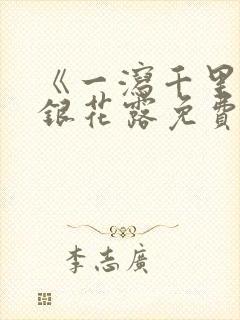 《一瀉千里
銀花露免費
李志廣